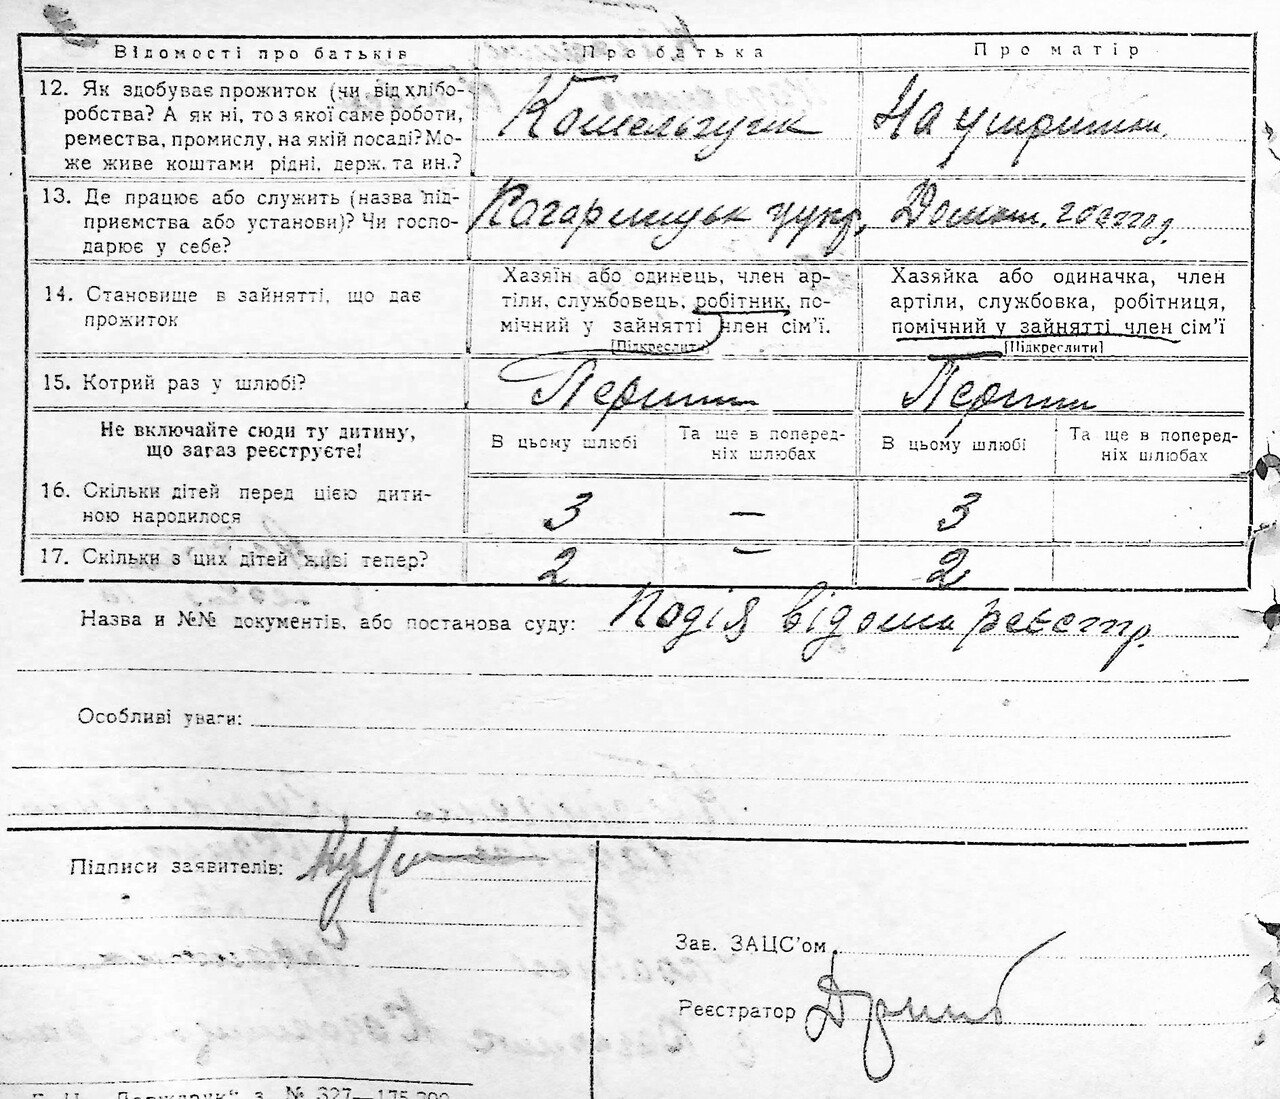 Відомості про батьків Про батька Про матір
12. Як здобуває прожиток (чи від хлібо-
робства? А як ні, то з якої саме роботи,
ремества, промислу, на якій посаді? Мо-
же живе коштами рідні, держ. та ин.?
На утриманні
13. Де працює або служить (назва під-
приємства або установи)? Чи госпо-
дарює у себе?
цукр. Домаш. господ.
14. Становище в зайнятті, що дає
прожиток
Хазяїн або одинець, член ар-
тіли, службовець, робітник, по-
мічний у зайнятті член сім'ї.
[Підкреслити]
Хазяйка або одиначка, член
артіли, службовка, робітниця,
помічний у зайнятті член сім'ї
[Підкреслити]
15. Котрий раз у шлюбі? Перший Перший
Не включайте сюди ту дитину,
що загаз реєструєте!
В цьому шлюбі
Та ще в поперед-
ніх шлюбах
В цьому шлюбі
Та ще в поперед-
ніх шлюбах
16. Скільки дітей перед цією дити-
ною народилося
3 — 3
17. Скільки з цих дітей живі тепер? 2 — 2
Назва и №№ документів, або постанова суду: Подія відома реєстр.
Особливі уваги:
Підписи заявителів:
Зав. ЗАЦС'ом
Реєстратор
З. № 327—175.200